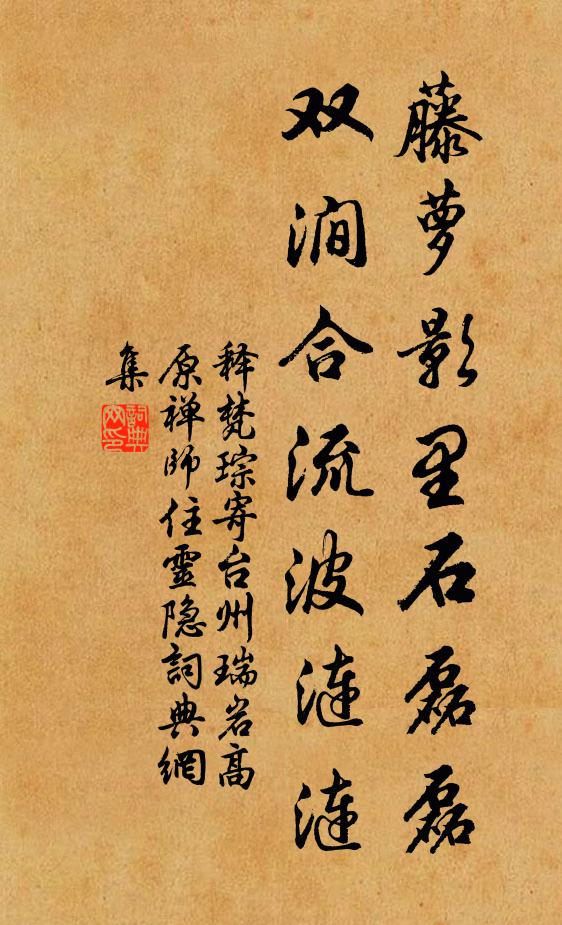 藤萝影里石磊磊
双涧合流波涟涟
释梵琮寄台州瑞岩高
原禅师住靈隐詞典網
集
詞典網印